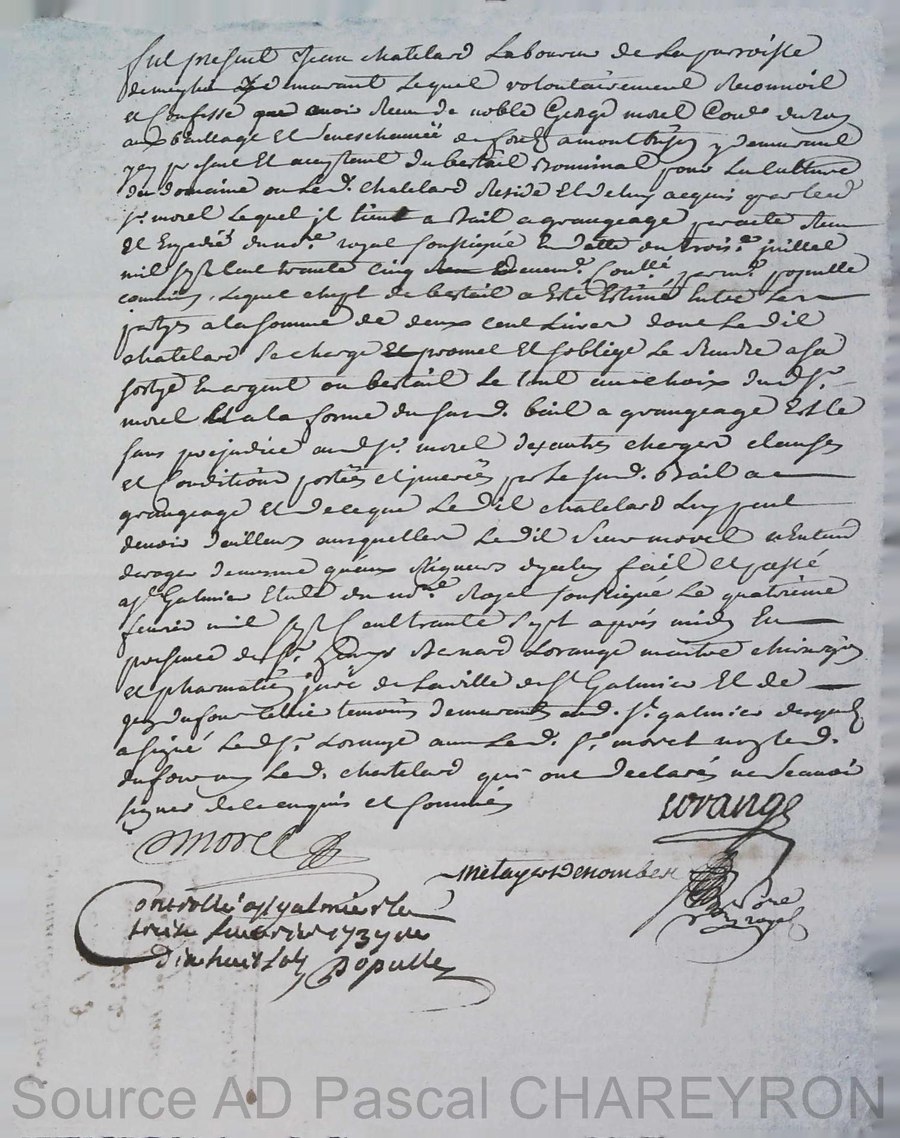 fut present Jean chatelard Laboureur de La parroisse
demeurant Lequel volontairement Reconnoit
et Confesse que avoir Receu de noble George morel Cons.r du Roy
aux bailliage et seneschaussée de forest a montbrison y demeurant
icy present et acceptant du bestail Rominal pour La Culture
du domaine ou Led. chatelard Reside Et deluy acquis par led
s.r morel Lequel il tient a Bail a grangeage par acte Receu
et Expedié du no.re royal soussigné En datte du trois.e juillet
mil sept cent trente cinq deuement Coullé par m.e populle
commis, Lequel chept.l de bestail a Esté Estimé Entre Les
partyes a la somme de deux cent Livres dont Le dit
chatelard se charge Et promet Et soblige Le Rendre a sa
sortye En argent ou bestail Le tout au choix dud. s.r
morel Et a la forme du susd. bail a grangeage Et le
sans prejudice aud s.r morel des autres charges clauses
et Conditions portées et inserées par Le susd. Bail a
grangeage et de ce que Le dit chatelard Luy peut
devoir d'ailleurs ausquelles Le dit sieur morel n'Entend
deroger fait et passé
a s.t Galmier Etude du no.re Royal soussigné Le quatrieme
fevrier mil sept Cent trente sept après midy En
presence de s.r Renard Lorange maitre chirurgien
et pharmatien juré de La ville de s.t Galmier Et de
dufour tellier temoins demeurants aud. s.t galmier desquels
a signé Led s.r Lorange avec Led. s.r morel non led.
dufour ny Led. chatelard qui ont declarés ne scavoir
signer de ce enquis et sommés
Lorange
Morel
no.re
royal
Controllé a s.t galmier le
treize fevrier 1737 reçu
dix huit sols Populle
Source AD Pascal CHAREYRON